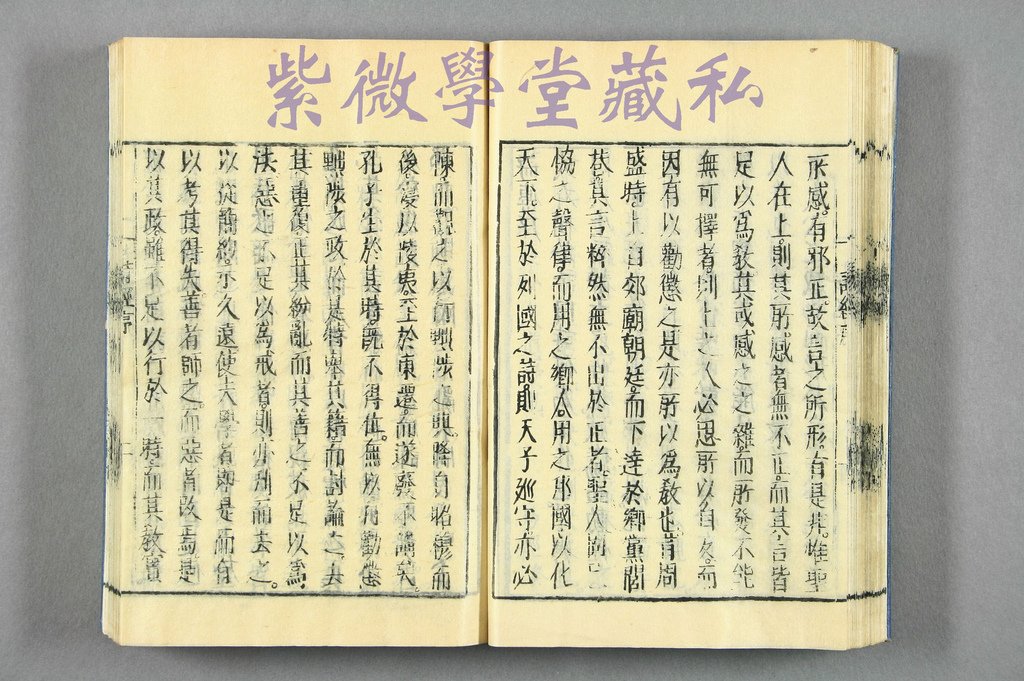 紫微學堂藏私
所感有邪正。故言之所形。有是非。惟聖
人在上。則其所感者無不正。而其言皆
足以爲教。其或感之之雜。而所發不能
無可擇者。則上之人必思所以自反。而
因有以勸懲之。是亦所以爲教也。昔周
盛時。上自郊廟朝廷。而下達於鄉黨閭
巷。其言粹然無不出於正者。聖人固已
恊之聲律。而用之鄉人。用之邦國。以化
天下。至於列國之詩。則天子巡守。亦必
陳而觀之。以行黜陟之典。降自昭穆而
後。寖以陵夷。至於東遷。而遂廢不講矣。
孔子生於其時。既不得位。無以行勸懲
黜陟之政。於是特舉其籍。而討論之。去
其重復。正其紛亂。而其善之不足以爲
法。惡之不足以爲戒者。則亦刋而去之。
以從簡約。示久遠。使夫學者卽是而有
以考其得失。善者師之。而惡者改焉。是
以其政雖不足以行於一時。而其教實
詩經序